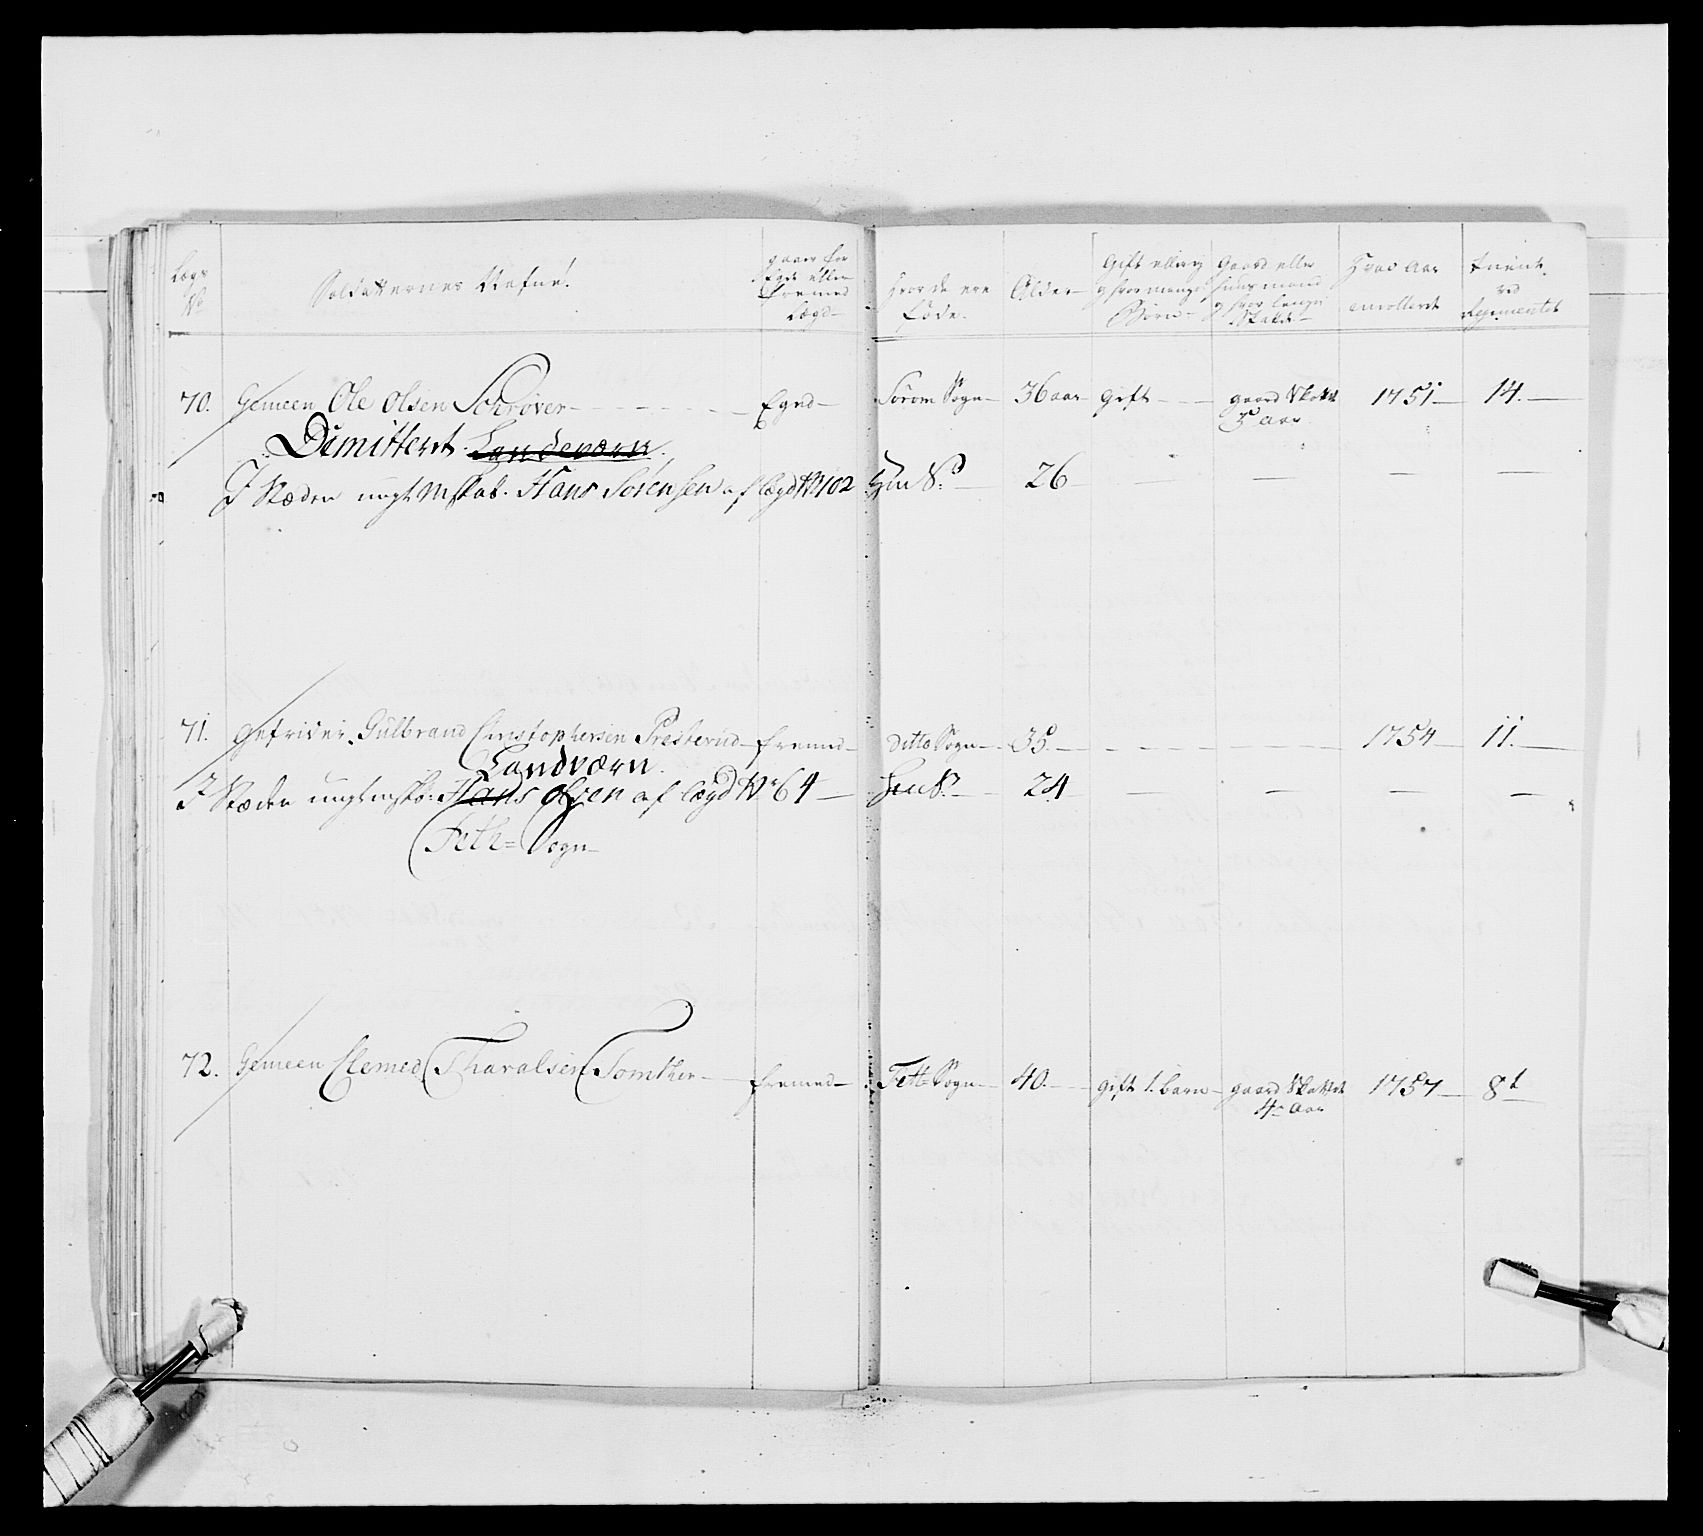 Lægs No
Soldatternes Nafne.
gaaer for Egde eller fremed Lægd
Hvor de ere føde
Alder
Gift eller ey og hvor mange Børn
Gaard eller huusmand og hvor længe Skattet
Hvad Aar enrolleret
tient ved Regimentet
70. Gemeen Ole Olsen Schrøver - Eged - Sørom Sogn - 36 aar - Gift - gaard Skattet 5 Aar - 1751 - 14.
Dimitteret. Landeværn.
I Stæden ungt Mskab. Hans Sørensen af lægd No 102 - 26
71. Gefrider. Gulbrand Christophersen Presterud - fremed - ditto Sogn - 35. - 1754 - 11.
Landværn.
I Stæden ungt mskb: Hans Olsen af lægd No 64 - 24
Feth Sogn
72. Gemeen Clemed Tharalsen Tomther - fremed - Feth Sogn - 40. - gift 1. barn - gaard Skattet 4 Aar - 1757 - 8t